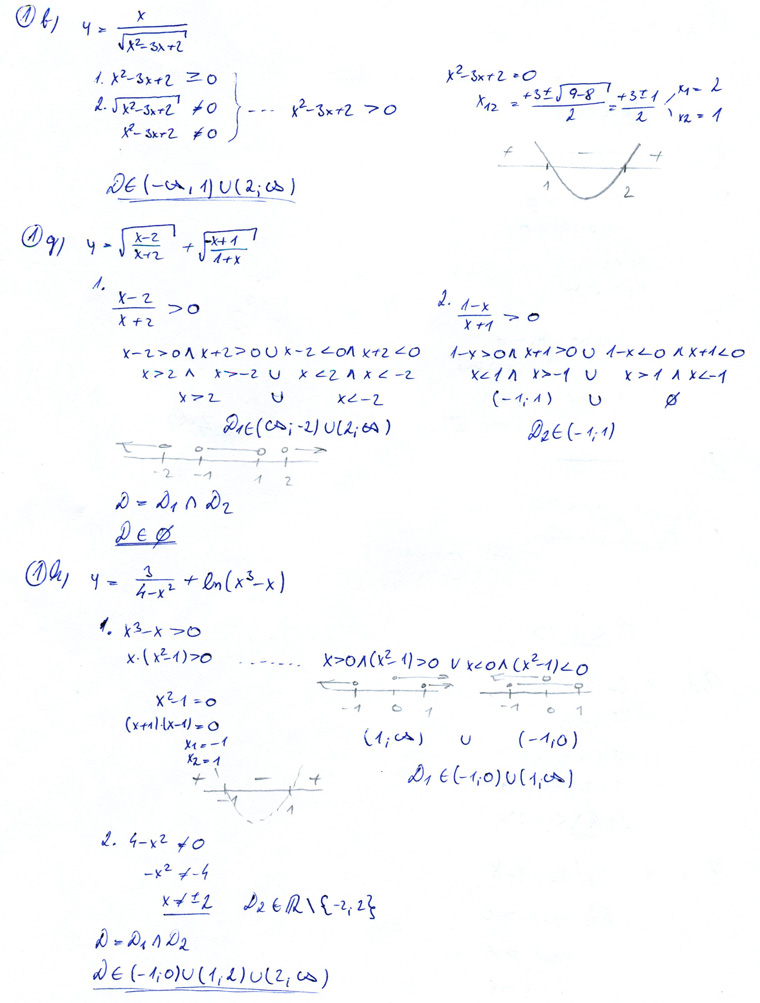 ① b) y = x / √(x²-3x+2)
1. x²-3x+2 ≥ 0
2. √(x²-3x+2) ≠ 0 } ... x²-3x+2 > 0
x²-3x+2 ≠ 0
x²-3x+2 = 0
x₁₂ = (+3±√(9-8))/2 = (+3±1)/2 x₁ = 2
x₂ = 1
+ - +
1 2
D∈(-∞, 1)∪(2; ∞)
① g) y = √((x-2)/(x+2)) + √((-x+1)/(1+x))
1. (x-2)/(x+2) > 0
x-2>0 ∧ x+2>0 ∪ x-2<0 ∧ x+2<0
x>2 ∧ x>-2 ∪ x<2 ∧ x<-2
x>2 ∪ x<-2
D₁∈(∞; -2)∪(2; ∞)
2. (1-x)/(x+1) > 0
1-x>0 ∧ x+1>0 ∪ 1-x<0 ∧ x+1<0
x<1 ∧ x>-1 ∪ x>1 ∧ x<-1
(-1; 1) ∪ ∅
D₂∈(-1; 1)
-2 -1 1 2
D = D₁ ∧ D₂
D ∈ ∅
① h) y = 3/(4-x²) + ln(x³-x)
1. x³-x > 0
x·(x²-1)>0 ........ x>0 ∧ (x²-1)>0 ∨ x<0 ∧ (x²-1)<0
-1 0 1 -1 0 1
x²-1=0
(x+1)·(x-1)=0
x₁=-1
x₂=1
(1; ∞) ∪ (-1, 0)
D₁∈(-1; 0)∪(1, ∞)
+ - +
-1 1
2. 4-x² ≠ 0
-x² ≠ -4
x ≠ ±2 D₂∈ℝ\{-2; 2}
D = D₁ ∧ D₂
D∈(-1; 0)∪(1, 2)∪(2, ∞)